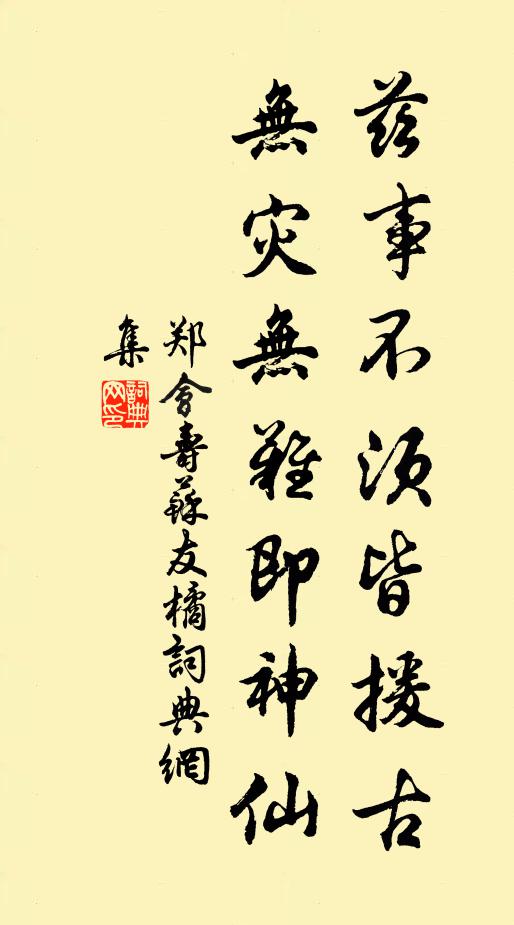 茲事不須皆援古
無灾無難即神仙
郑會壽蘇友橘詞典網
集
詞典網印